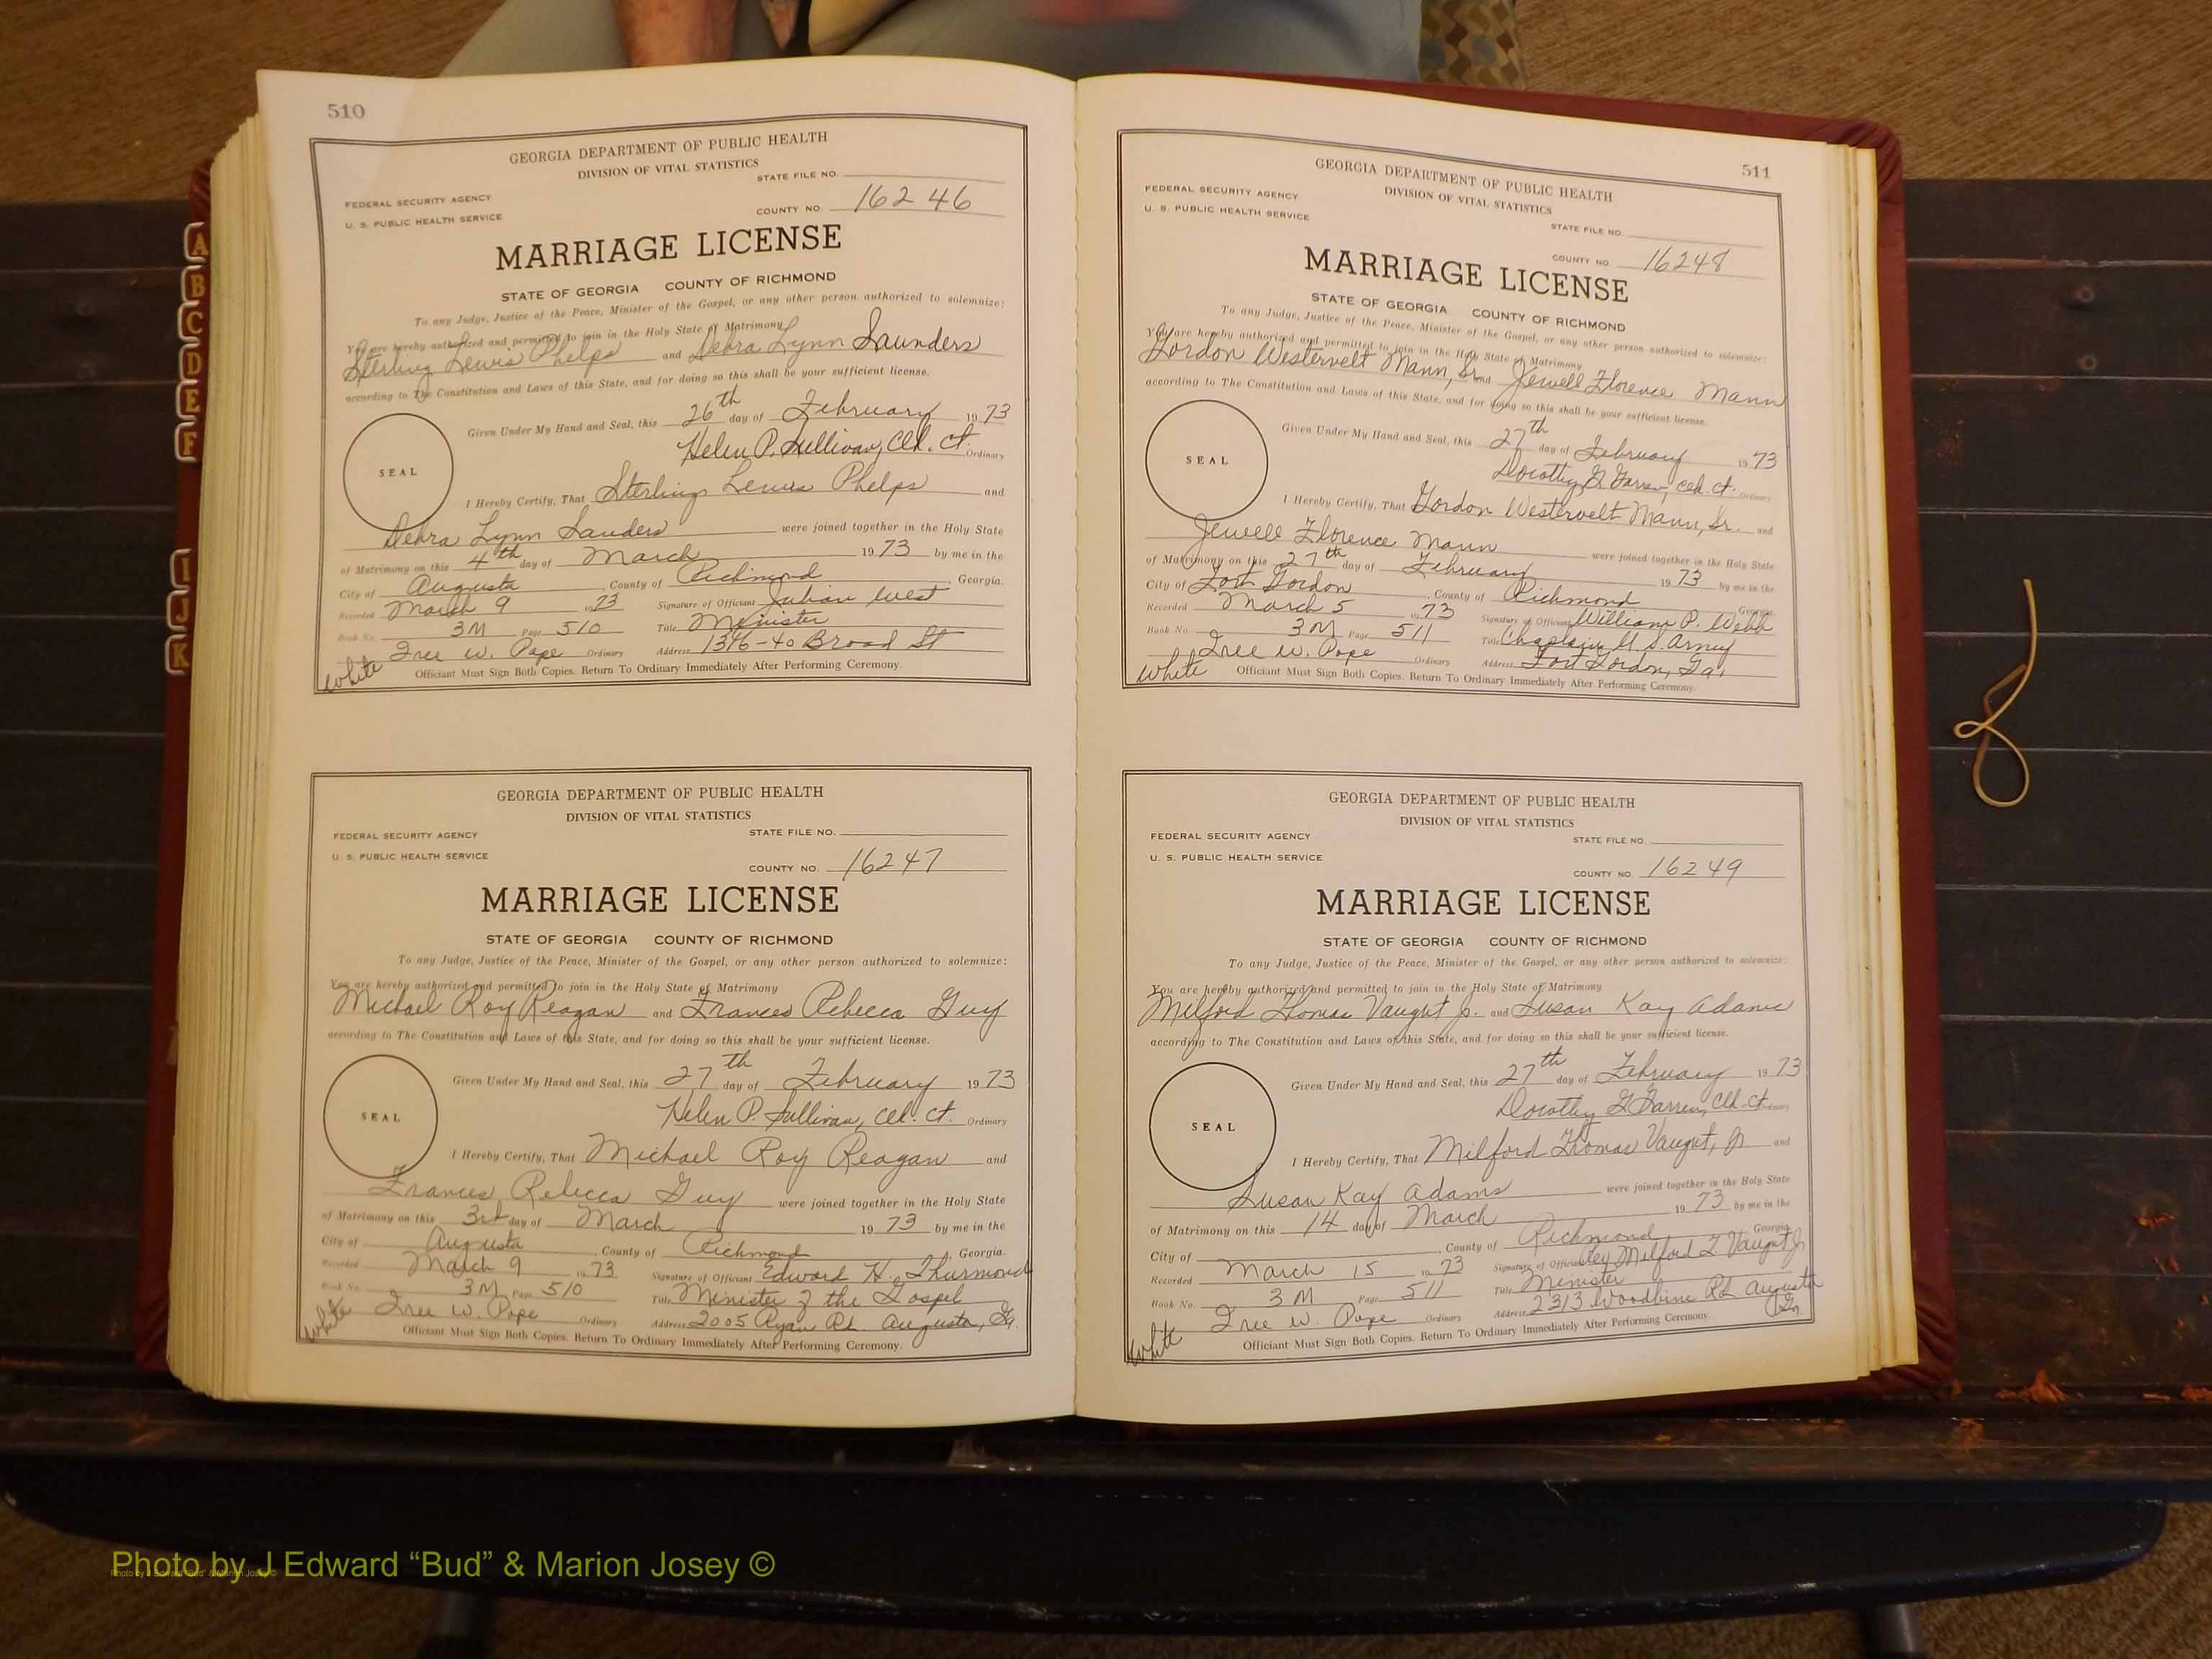 510
GEORGIA DEPARTMENT OF PUBLIC HEALTH
DIVISION OF VITAL STATISTICS
STATE FILE NO.
FEDERAL SECURITY AGENCY
U. S. PUBLIC HEALTH SERVICE
COUNTY NO. 16246
MARRIAGE LICENSE
STATE OF GEORGIA COUNTY OF RICHMOND
To any Judge, Justice of the Peace, Minister of the Gospel, or any other person authorized to solemnize:
You are hereby authorized and permitted to join in the Holy State of Matrimony
Sterling Lewis Phelps and Debra Lynn Saunders
according to The Constitution and Laws of this State, and for doing so this shall be your sufficient license.
Given Under My Hand and Seal, this 26th day of February 1973
Helen P. Sullivan, Clk. Ct. Ordinary
SEAL
I Hereby Certify, That Sterling Lewis Phelps and
Debra Lynn Sauders were joined together in the Holy State
of Matrimony on this 4th day of March 1973 by me in the
City of Augusta, County of Richmond, Georgia.
Recorded March 9 1973 Signature of Officiant Julian West
Book No. 3M Page 510 Title Minister
Iree W. Pope Ordinary Address 1346-40 Broad St
white Officiant Must Sign Both Copies. Return To Ordinary Immediately After Performing Ceremony.
GEORGIA DEPARTMENT OF PUBLIC HEALTH
DIVISION OF VITAL STATISTICS
FEDERAL SECURITY AGENCY STATE FILE NO.
U. S. PUBLIC HEALTH SERVICE
COUNTY NO. 16247
MARRIAGE LICENSE
STATE OF GEORGIA COUNTY OF RICHMOND
To any Judge, Justice of the Peace, Minister of the Gospel, or any other person authorized to solemnize:
You are hereby authorized and permitted to join in the Holy State of Matrimony
Michael Roy Reagan and Frances Rebecca Guy
according to The Constitution and Laws of this State, and for doing so this shall be your sufficient license.
Given Under My Hand and Seal, this 27th day of February 1973
Helen P. Sullivan, Clk. Ct. Ordinary
SEAL
I Hereby Certify, That Michael Roy Reagan and
Frances Rebecca Guy were joined together in the Holy State
of Matrimony on this 3rd day of March 1973 by me in the
City of Augusta, County of Richmond, Georgia.
Recorded March 9 1973 Signature of Officiant Edward H. Thurmond
Book No. 3M Page 510 Title Minister of the Gospel
Iree W. Pope Ordinary Address 2005 Ryan Rd. Augusta, Ga.
white Officiant Must Sign Both Copies. Return To Ordinary Immediately After Performing Ceremony.
511
GEORGIA DEPARTMENT OF PUBLIC HEALTH
DIVISION OF VITAL STATISTICS
FEDERAL SECURITY AGENCY
U. S. PUBLIC HEALTH SERVICE
STATE FILE NO.
COUNTY NO. 16248
MARRIAGE LICENSE
STATE OF GEORGIA COUNTY OF RICHMOND
To any Judge, Justice of the Peace, Minister of the Gospel, or any other person authorized to solemnize:
You are hereby authorized and permitted to join in the Holy State of Matrimony
Gordon Westervelt Mann, Sr. and Jewell Florence Mann
according to The Constitution and Laws of this State, and for doing so this shall be your sufficient license.
Given Under My Hand and Seal, this 27th day of February 1973
Dorothy G. Farren, Clk. Ct. Ordinary
SEAL
I Hereby Certify, That Gordon Westervelt Mann, Sr. and
Jewell Florence Mann were joined together in the Holy State
of Matrimony on this 27th day of February 1973 by me in the
City of Fort Gordon, County of Richmond Georgia.
Recorded March 5 1973 Signature of Officiant William P. Webb
Book No. 3M Page 511 Title Chaplain U.S. Army
Iree W. Pope Ordinary Address Fort Gordon, Ga.
white Officiant Must Sign Both Copies. Return To Ordinary Immediately After Performing Ceremony.
GEORGIA DEPARTMENT OF PUBLIC HEALTH
DIVISION OF VITAL STATISTICS
FEDERAL SECURITY AGENCY STATE FILE NO.
U. S. PUBLIC HEALTH SERVICE
COUNTY NO. 16249
MARRIAGE LICENSE
STATE OF GEORGIA COUNTY OF RICHMOND
To any Judge, Justice of the Peace, Minister of the Gospel, or any other person authorized to solemnize:
You are hereby authorized and permitted to join in the Holy State of Matrimony
Milford Thomas Vaught Jr. and Susan Kay Adams
according to The Constitution and Laws of this State, and for doing so this shall be your sufficient license.
Given Under My Hand and Seal, this 27th day of February 1973
Dorothy G Farren, Clk. Ct Ordinary
SEAL
I Hereby Certify, That Milford Thomas Vaught, Jr and
Susan Kay Adams were joined together in the Holy State
of Matrimony on this 14 day of March 1973 by me in the
City of , County of Richmond Georgia
Recorded March 15 1973 Signature of Officiant Rev Milford T Vaught Jr
Book No. 3M Page 511 Title Minister
Iree W. Pope Ordinary Address 2313 Woodbine Rd Augusta Ga
white Officiant Must Sign Both Copies. Return To Ordinary Immediately After Performing Ceremony.
A
B
C
D
E
F
I
J
K
Photo by J Edward “Bud” & Marion Josey ©
Photo by J Edward "Bud" & Marion Josey ©